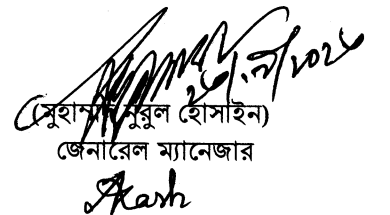 (মুহাম্মদ নুরুল হোসাইন)
জেনারেল ম্যানেজার
Akash